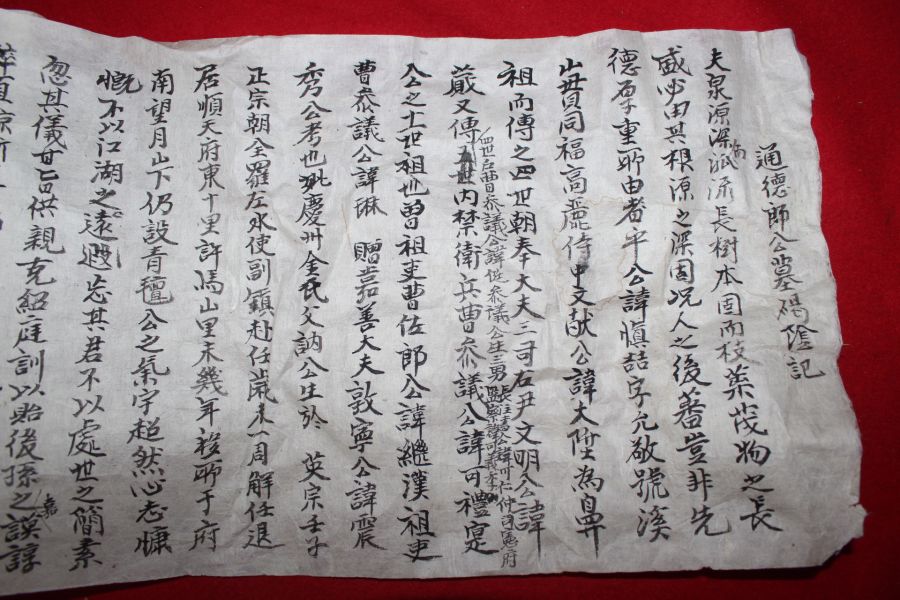 通德郎公墓碣陰記
夫泉源深而派流長樹本固而枝葉茂物之長
盛必由其根源之深固况人之後蕃豈非先
德厚重所由者乎公諱愼喆字允敬號溪
山貫同福高麗侍中文献公諱大陞為鼻
祖而傳之四世朝奉大夫三司右尹文明公諱
蕆又傳內禁衛兵曹叅議公諱可禮寔
四世兵曹叅議公諱佐叅議公生三男
公之十世祖也曾祖吏曹佐郎公諱繼漢祖吏
曹叅議公諱琳 贈嘉善大夫敦寧公諱震
秀公考也妣慶州金氏父訥公生於 英宗壬子
正宗朝全羅左水使副鎮赴任歲未一周解任退
居順天府東十里許馬山里未幾年移所于府
南望月山下仍設青氈公之氣宇超然心志慷
慨不以江湖之遠遐忘其君不以處世之簡素
忽其儀甘旨供親克紹庭訓以貽後孫之嘉謨諄